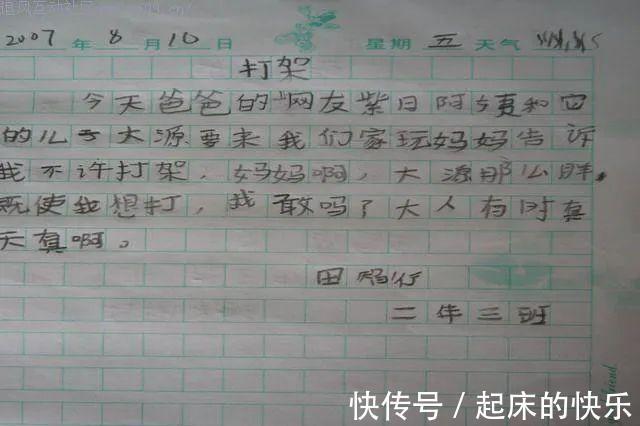 2007 年 8 月 10 日 星期 五 天气
打架
今天爸爸的网友紫日阿姨和它
的儿子大源要来我们家玩妈妈告诉
我不许打架，妈妈啊，大源那么胖，
既使我想打，我敢吗？大人有时真
天真啊。
田
二年三班
快传号 / 起床的快乐